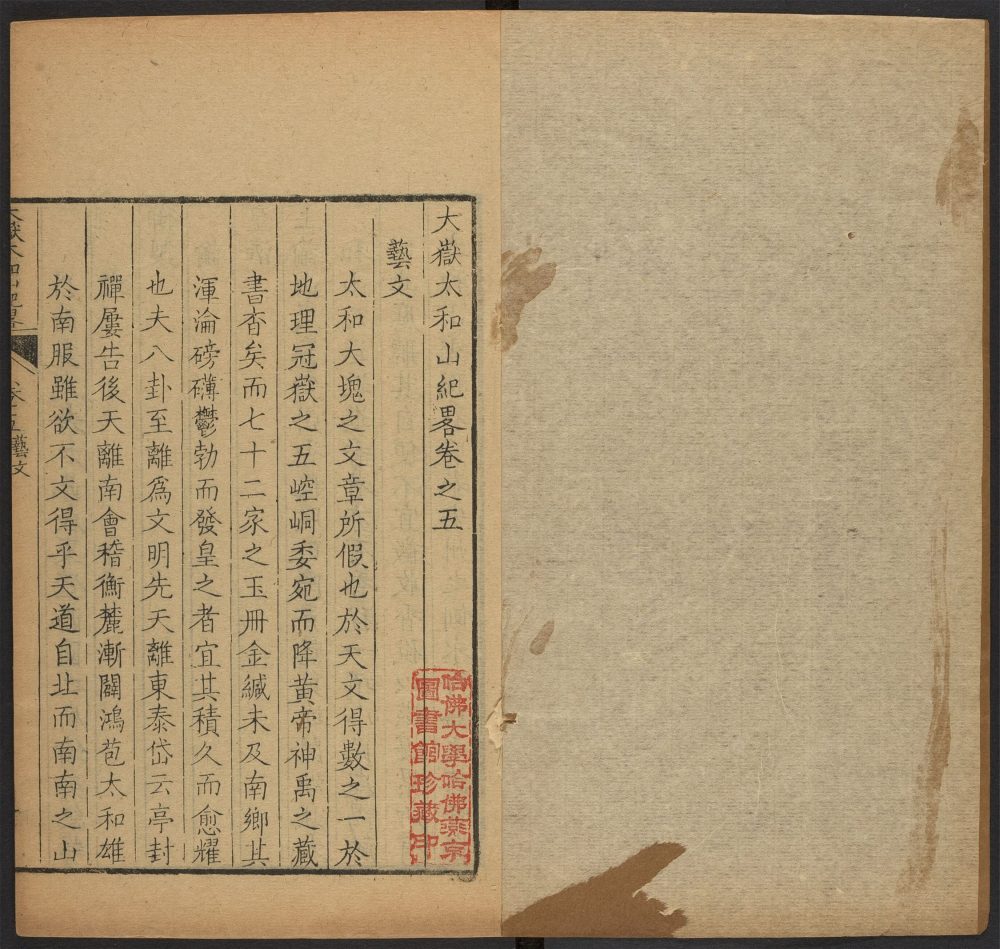 大嶽太和山紀畧卷之五
藝文
太和大塊之文章所假也於天文得數之一於
地理冠嶽之五崆峒委宛而降黄帝神禹之藏
書杳矣而七十二家之玉冊金緘未及南鄉其
渾淪磅礴鬱勃而發皇之者宜其積久而愈耀
也夫八卦至離爲文明先天離東泰岱云亭封
禪屢告後天離南會稽衡麓漸闢鴻苞太和雄
於南服雖欲不文得乎天道自北而南南之山
大嶽太和山紀畧
卷之五藝文
哈佛大學哈佛燕京
圖書館珍藏印